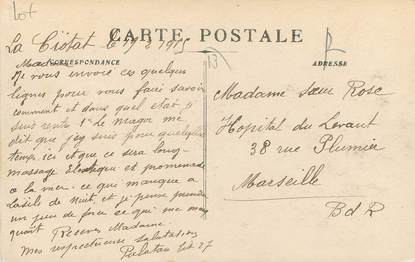 lot
CARTE POSTALE
La Ciotat le 19 2 1915
CORRESPONDANCE
ADRESSE
13
Madame
Je vous envoie ces quelques
lignes pour vous faire savoir
comment et dans quel état je
suis rentré le Magor me
dit que j'ey suis pour quelque
temps ici et que ce sera long
massage Electrique et promenade
a la mer. ce qui manque a
Lasile de Nuit, et je pense prendre
un peu de force ce qui me man
quait Recever Madame
Mes respectueuse salutation
27
Madame sœur Rose
Hopital du Levant
38 rue Plumier
Marseille
B d R